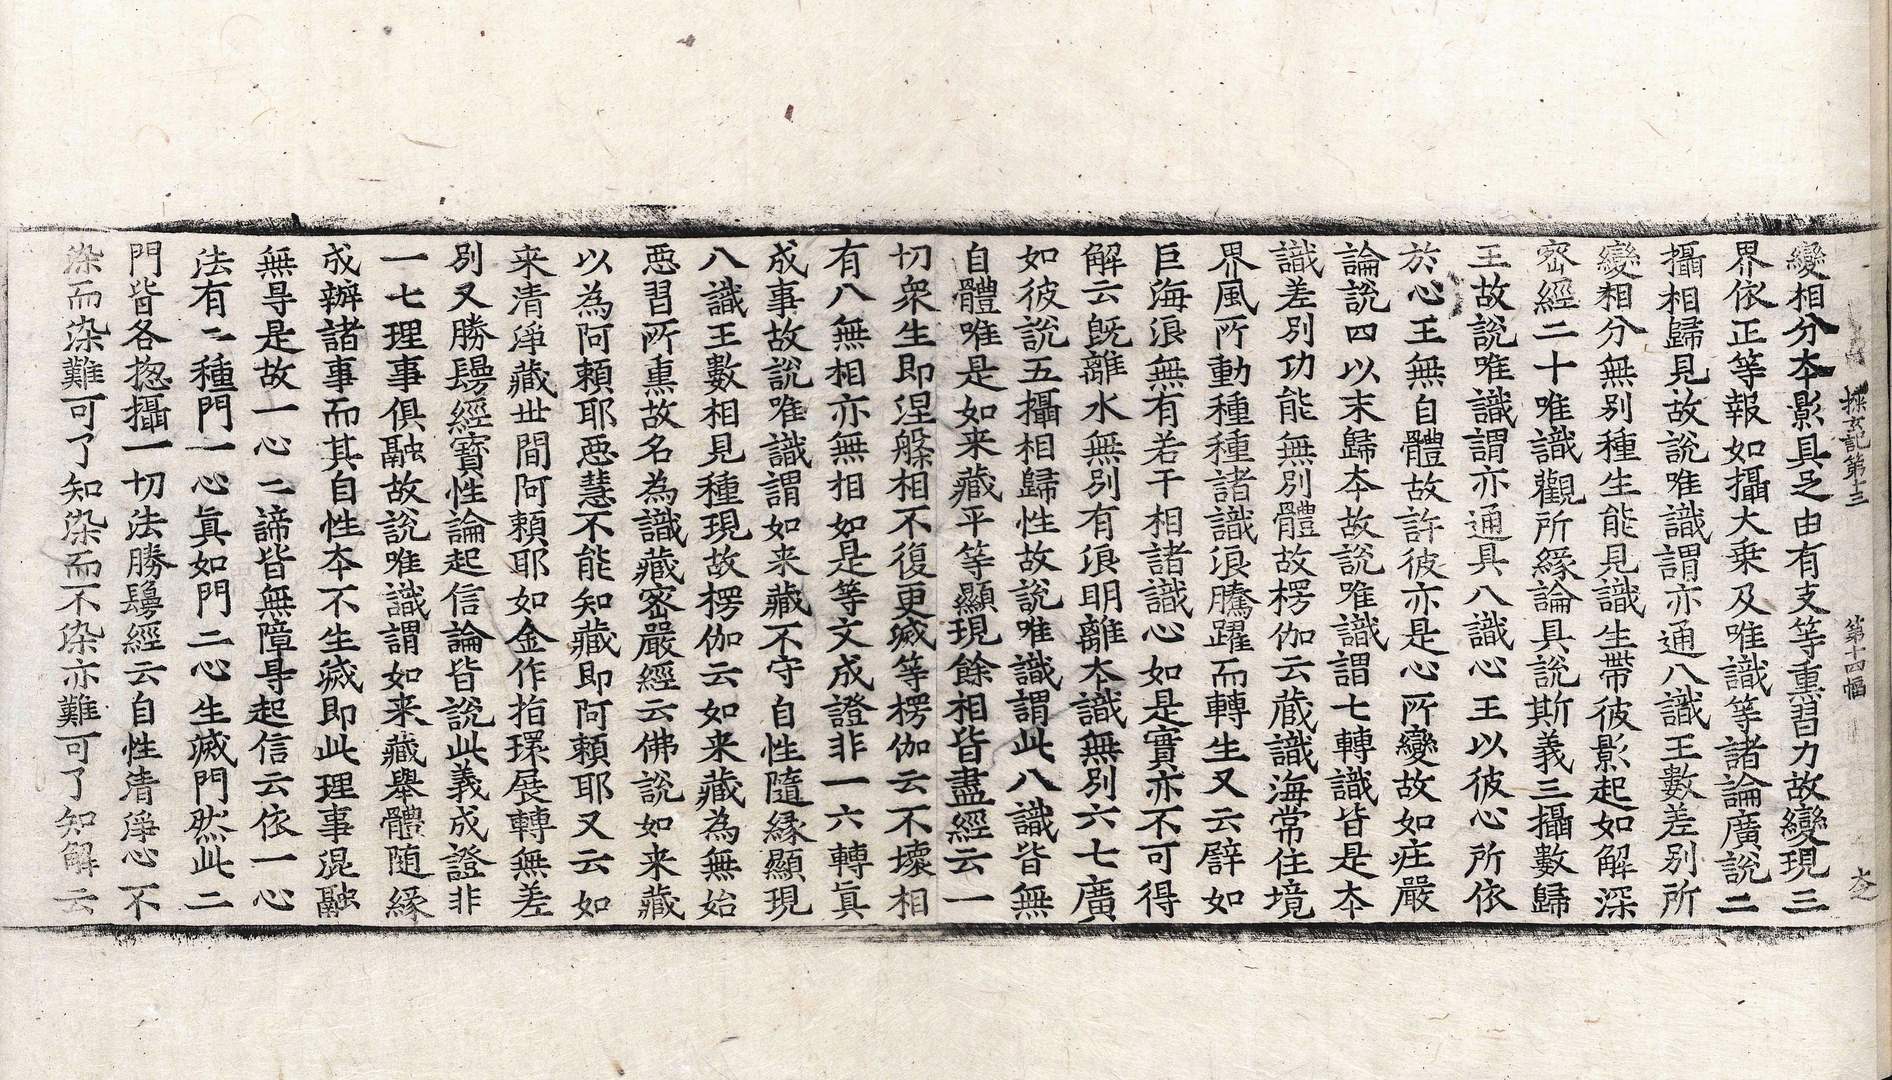 探玄記第十三　第十四幅　大
變相分本影具足由有支等熏習力故變現三
界依正等報如攝大乗及唯識等諸論廣說二
攝相歸見故說唯識謂亦通八識王數差別所
變相分無別種生能見識生帶彼影起如解深
宻經二十唯識觀所緣論具說斯義三攝數歸
王故說唯識謂亦通具八識心王以彼心所依
於心王無自體故許彼亦是心所變故如庄嚴
論說四以末歸本故說唯識謂七轉識皆是本
識差別功能無別體故楞伽云蔵識海常住境
界風所動種種諸識浪騰躍而轉生又云譬如
巨海浪無有若干相諸識心如是實亦不可得
解云旣離水無別有浪明離本識無別六七廣
如彼說五攝相歸性故說唯識謂此八識皆無
自體唯是如来藏平等顯現餘相皆盡經云一
切衆生即涅槃相不復更滅等楞伽云不壞相
有八無相亦無相如是等文成證非一六轉真
成事故說唯識謂如来藏不守自性隨緣顯現
八識王數相見種現故楞伽云如来藏為無始
惡習所熏故名為識藏宻嚴經云佛說如来藏
以為阿頼耶惡慧不能知藏即阿頼耶又云如
来清淨藏世間阿頼耶如金作指環展轉無差
別又勝鬘經寶性論起信論皆說此義成證非
一七理事俱融故說唯識謂如来藏舉體随緣
成辦諸事而其自性本不生滅即此理事混融
無㝵是故一心二諦皆無障㝵起信云依一心
法有二種門一心真如門二心生滅門然此二
門皆各揔攝一切法勝鬘經云自性清淨心不
染而染難可了知染而不染亦難可了知解云